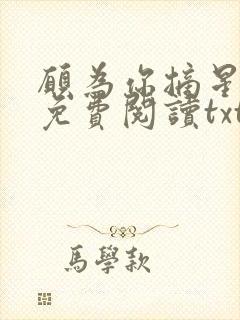 願為你摘星
免費閱讀txt
馬學款